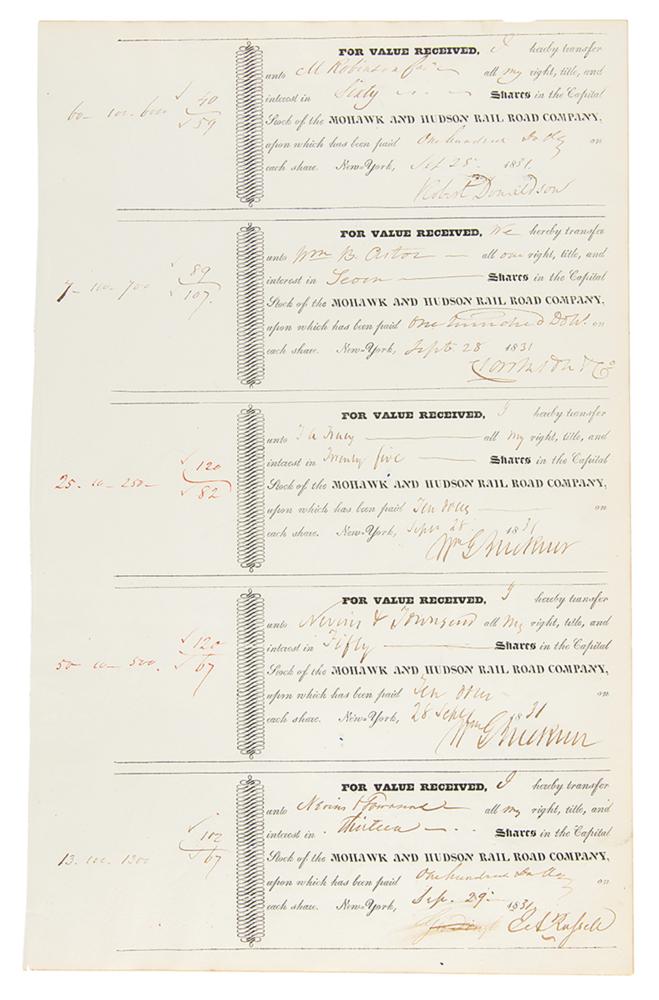 FOR VALUE RECEIVED, I hereby transfer
unto M Robinson all my right, title, and
60 - 100 - 6000 40
interest in Sixty Shares in the Capital
59
Stock of the MOHAWK AND HUDSON RAIL ROAD COMPANY,
upon which has been paid One hundred Dolls on
each share. New-York, Sept 28 1831
Robert Donaldson
FOR VALUE RECEIVED, We hereby transfer
unto Wm B. Astor all our right, title, and
89
interest in Seven Shares in the Capital
7 - 100 - 700 107.
Stock of the MOHAWK AND HUDSON RAIL ROAD COMPANY,
upon which has been paid One hundred Doll. on
each share. New-York, Sept. 28 1831
& Co
FOR VALUE RECEIVED, I hereby transfer
unto all my right, title, and
120
interest in Twenty five Shares in the Capital
25 - 10 - 250 - 82
Stock of the MOHAWK AND HUDSON RAIL ROAD COMPANY,
upon which has been paid Ten on
each share. New-York, Sepr 28 1831
Wm G Buckner
FOR VALUE RECEIVED, I hereby transfer
unto Nevins & Townsend all my right, title, and
120
interest in Fifty Shares in the Capital
50 - 10 - 500. 67
Stock of the MOHAWK AND HUDSON RAIL ROAD COMPANY,
upon which has been paid Ten on
each share. New-York, 28 Sept 1831
Wm G Buckner
FOR VALUE RECEIVED, I hereby transfer
unto Nevins & Townsend all my right, title, and
102
interest in Thirteen Shares in the Capital
13 - 100 - 1300 67
Stock of the MOHAWK AND HUDSON RAIL ROAD COMPANY,
upon which has been paid One hundred Dolls on
each share. New-York, Sep. 29 1831
E A Russell